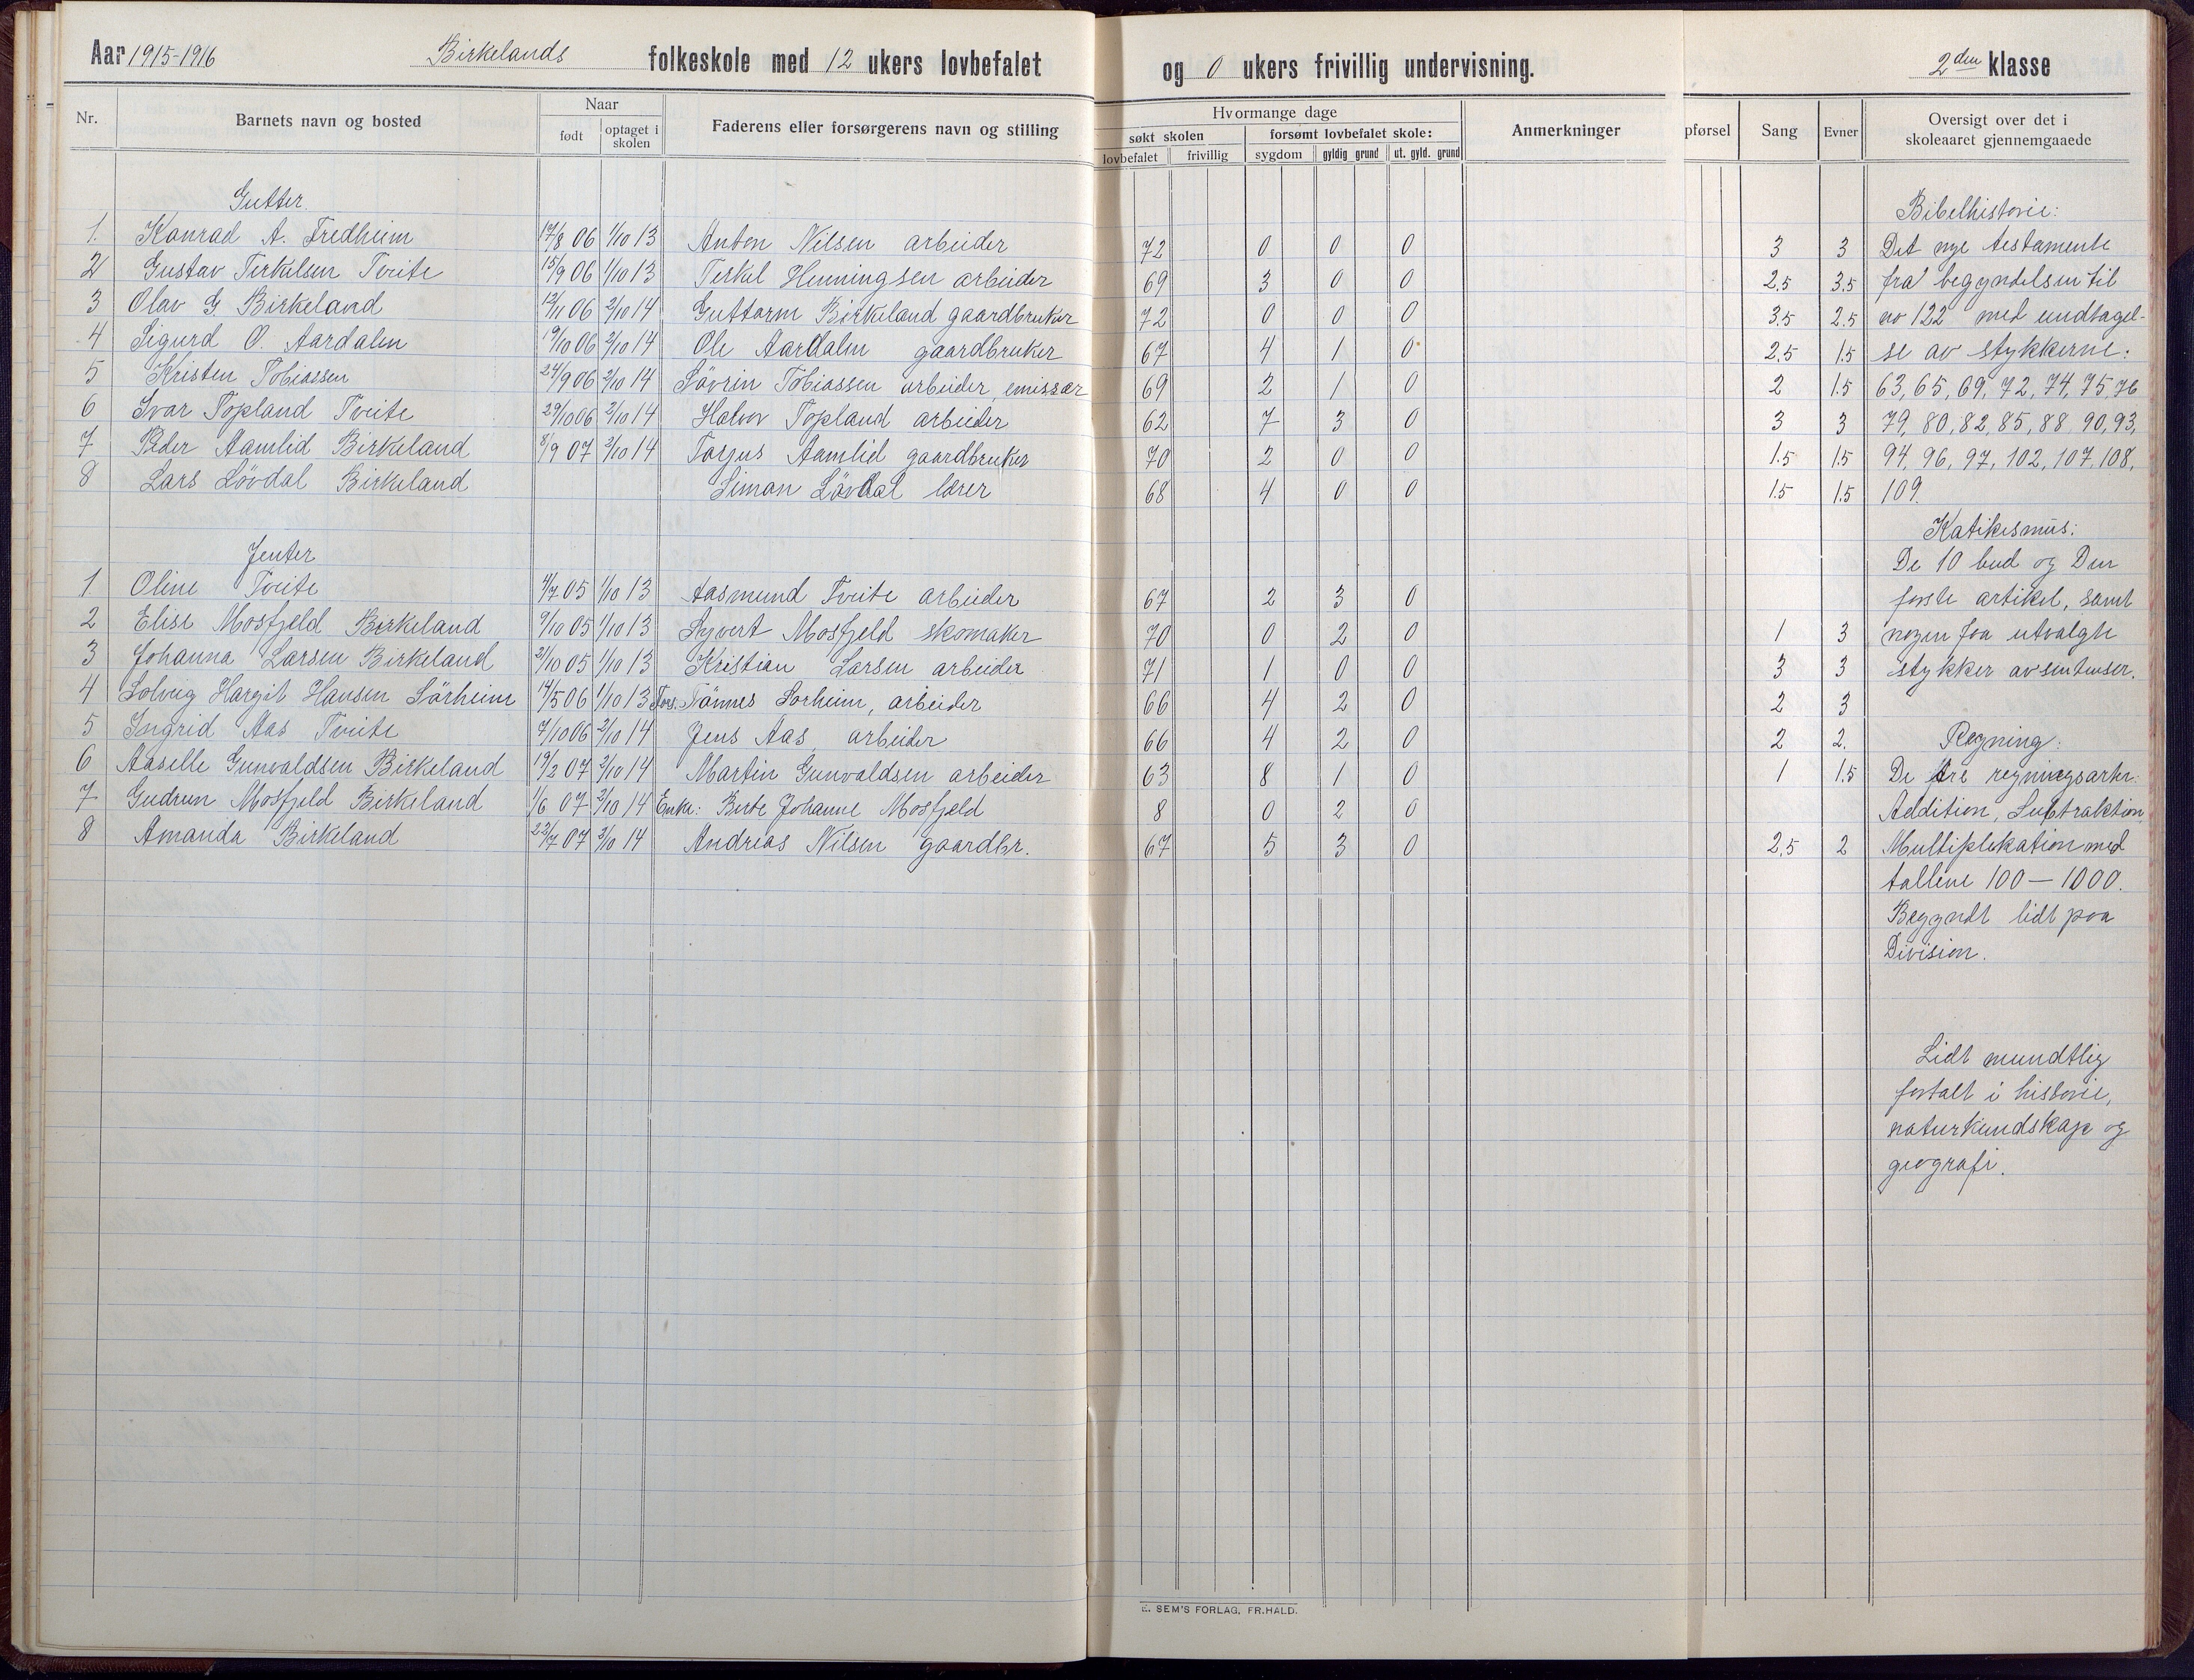 Aar 1915-1916 Birkelands folkeskole med 12 ukers lovbefalet og 0 ukers frivillig undervisning. 2den klasse
Nr. Barnets navn og bosted Naar født optaget i skolen Faderens eller forsørgerens navn og stilling
Hvormange dage søkt skolen lovbefalet frivillig forsømt lovbefalet skole: sygdom gyldig grund ut. gyld. grund Anmerkninger
pførsel Sang Evner Oversigt over det i skoleaaret gjennemgaaede
Gutter.
1. Konrad A. Fredheim 17/8 06 1/10 13 Anton Nilsen arbeider 72 0 0 0 3 3
2 Gustav Terkelsen Tveite 15/9 06 1/10 13 Terkel Henningsen arbeider 69 3 0 0 2.5 3.5
3 Olav G Birkeland 12/11 06 2/10 14 Guttorm Birkeland gaardbruker 72 0 0 0 3.5 2.5
4 Sigurd O. Aardalen 19/10 06 2/10 14 Ole Aardalen gaardbruker 67 4 1 0 2.5 1.5
5 Kristen Tobiassen 24/9 06 2/10 14 Sövrin Tobiassen arbeider, emissær 69 2 1 0 2 1.5
6 Ivar Topland Tveite 29/10 06 2/10 14 Halvor Topland arbeider 62 7 3 0 3 3
7 Peder Aamlid Birkeland 8/9 07 2/10 14 Torjus Aamlid gaardbruker 70 2 0 0 1.5 1.5
8 Lars Lövdal Birkeland Simon Lövdal lærer 68 4 0 0 1.5 1.5
Jenter
1 Oline Tveite 4/7 05 1/10 13 Aasmund Tveite arbeider 67 2 3 0
2 Elise Mosfjeld Birkeland 9/10 05 1/10 13 Syvert Mosfjeld skomaker 70 0 2 0 1 3
3 Johanna Larsen Birkeland 21/10 05 1/10 13 Kristian Larsen arbeider 71 1 0 0 3 3
4 Solveig Hargit Hansen Sörheim 14/5 06 1/10 13 Fors. Tönnes Sorheim, arbeider 66 4 2 0 2 3
5 Ingrid Aas Tveite 7/10 06 2/10 14 Jens Aas arbeider 66 4 2 0 2 2.
6 Aaselle Gunvaldsen Birkeland 19/2 07 2/10 14 Martin Gunvaldsen arbeider 63 8 1 0 1 1.5
7 Gudrun Mosfjeld Birkeland 1/6 07 2/10 14 Enke: Berte Johanne Mosfjeld 8 0 2 0
8 Amanda Birkeland 22/7 07 2/10 14 Andreas Nilsen gaardbr. 67 5 3 0 2.5 2
Bibelhistorie:
Det nye testamente
fra begyndelsen til
no 122 med undtagel-
se av stykkerne:
63, 65, 69, 72, 74, 75, 76
79, 80, 82, 85, 88, 90, 93,
94, 96, 97, 102, 107, 108,
109.
Katikesmus:
De 10 bud og Den
første artikel, samt
nogen faa utvalgte
stykker av sentenser.
Regning:
De fire regningsarter:
Addition, Subtraktion,
Multiplikation med
tallene 100 — 1000.
Begyndt lidt paa
Division.
Lidt mundtlig
fortalt i historie,
naturkundskap og
geografi.
E. SEM'S FORLAG, FR.HALD.